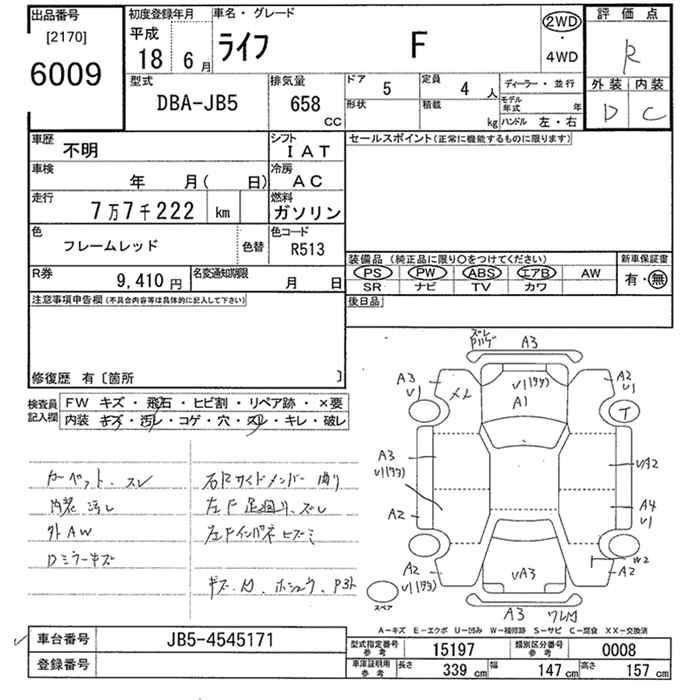 出品番号
[2170]
6009
初度登録年月
平成
18 6月
車名・グレード
ライフ F
2WD
・
4WD
評価点
R
外装 内装
D C
型式
DBA-JB5
排気量
658
CC
ドア
5
定員
4 人
形状
積載
kg
ディーラー・並行
モデル年式 年
ハンドル 左・右
車歴
不明
シフト
IAT
車検
年 月( 日)
冷房
AC
走行
7万7千222 km
燃料
ガソリン
色
フレームレッド
色替
色コード
R513
R券
9,410円
名変通知期限
月 日
セールスポイント(正常に機能するものに限ります)
装備品 (純正品に限り○をつけてください)
PS PW ABS エアB AW
SR ナビ TV カワ
新車保証書
有・無
後日品
注意事項申告欄(不具合内容等は具体的に記入して下さい)
修復歴 有〔箇所 〕
検査員
記入欄
FW キズ・飛石・ヒビ割・リペア跡・×要
内装 キズ・汚レ・コゲ・穴・スレ・キレ・破レ
カーペット、スレ
内装 汚レ
外AW
Dミラーキズ
右Rサイドメンバー曲り
左F足廻り、ズレ
左Fインパネヒズミ
キズ・凹、ホシュウ、P3ト
ズレ
A3
A3
U1
メレ
U1(ワレ)
A1
A2
U1
T
A3
U1(ワレ)
A2
UA2
A4
U1
A2
U1(ワレ)
UA3
W2
A2
A3 ワレ凹
スペア
A－キズ E－エクボ U－凹み W－補修跡 S－サビ C－腐食 XX－交換済
車台番号
JB5-4545171
登録番号
型式指定番号
参考
15197
類別区分番号
参考
0008
車庫証明用
参考
長さ
339 cm
幅
147 cm
高さ
157 cm